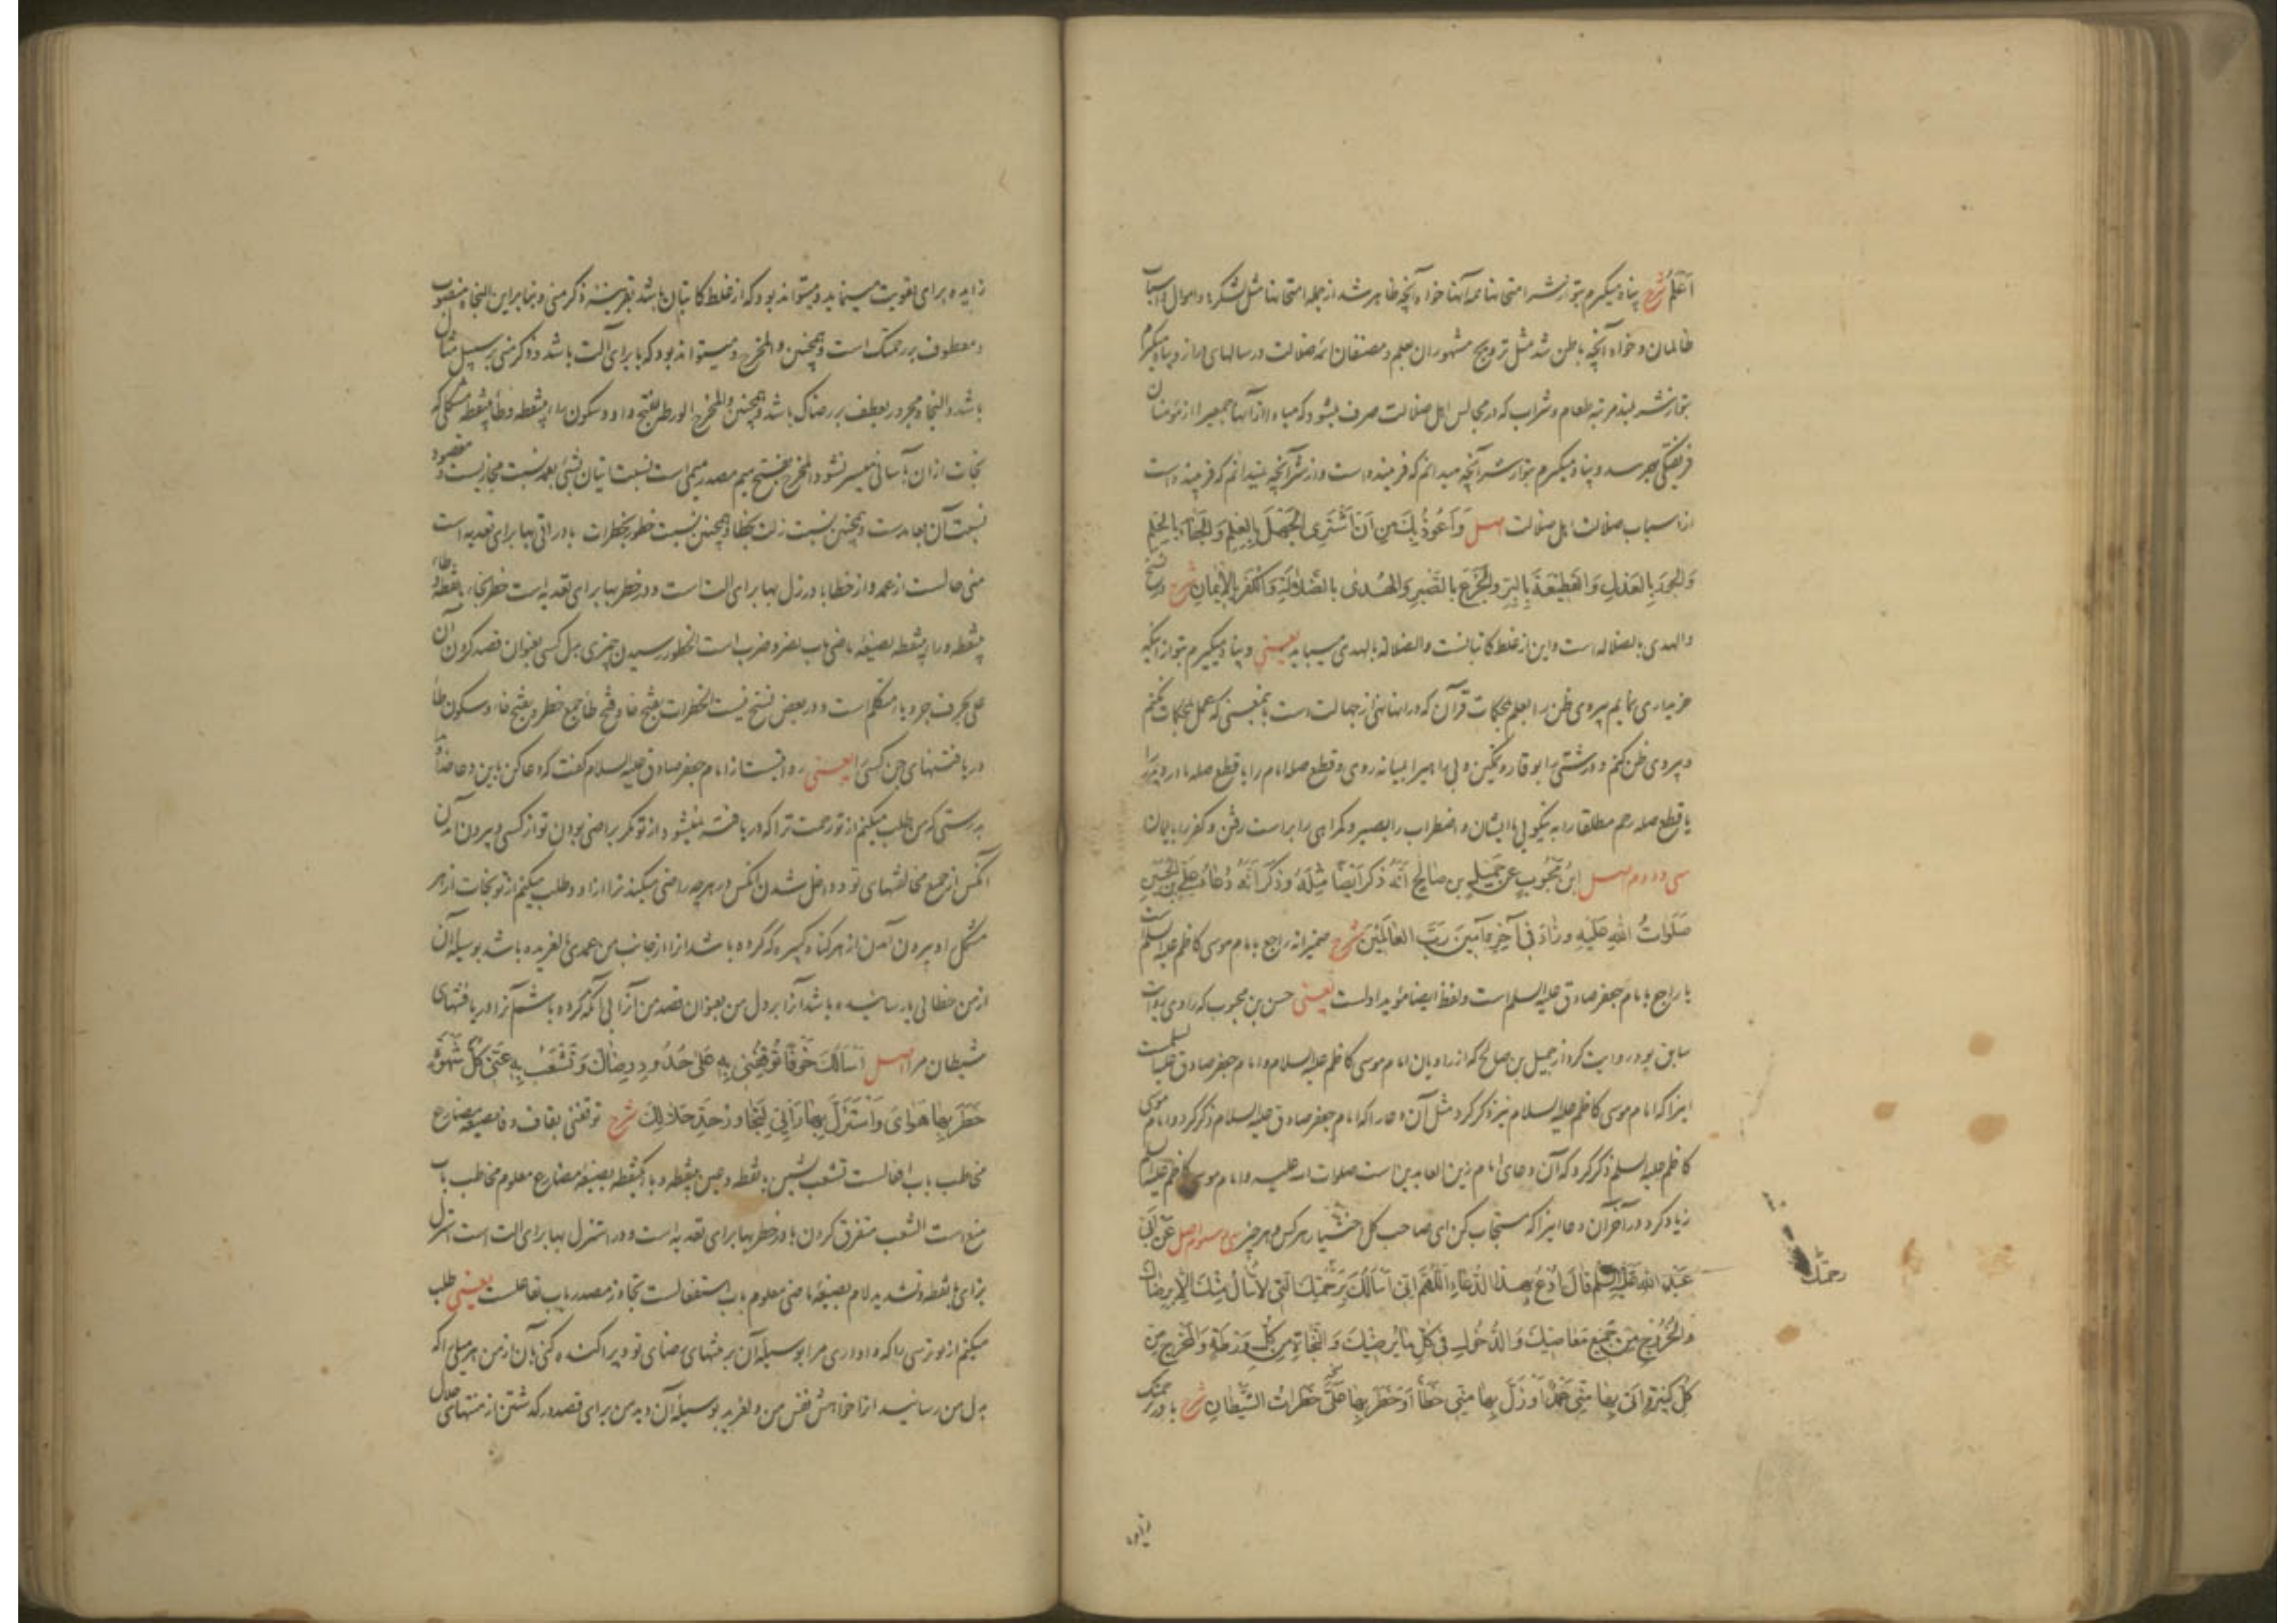 اَعْلَمُ شرح پناه میکیرم بتو از شر امتحانها همه آنها خواه آنچه ظاهر شد از جمله امتحانها مثل لشکرها و اموال و اسباب
ظالمان و خواه آنچه باطن شد مثل ترویج مشهوران بعلم و مصنفان ائمه ضلالت در سالهای دراز و پناه میکیرم
بتو از شر لبند مرتبه طعام و شراب که در مجالس اهل ضلالت صرف میشود که مبادا از آنها جمعیرا از مؤمنان
فریفتکی بهم رسد و پناه میکیرم بتو از شر آنچه میدانم که فریبنده است و از شر آنچه نمیدانم که فریبنده است
از اسباب ضلالت اهل ضلالت اصل وَاَعُوذُ بِكَ مِن اَن اَشْتَرِی الجَهْلَ بِالعِلمِ وَالجَفَآءَ بِالحِلمِ
وَالجَورَ بِالعَدلِ وَالقَطیعَةَ بِالبِرِّ وَالجَزَعَ بِالصَّبرِ وَالهُدیٰ بِالضَّلالَةِ وَالکُفرَ بِالاِیمانِ شرح در نسخ
والهدی بالضلاله است و این از غلط کاتبانست والضلالة بالهدی میباید یعنی و پناه میکیرم بتو از اینکه
خریداری نمایم پیروی ظن را بعلم بمحکمات قرآن که در آنها نهی از جهالت است بمعنی که عمل بمحکمات نکنم
و پیروی ظن کنم و درشتی را بوقار و تمکین و بی راهیرا بمیانه روی و قطع صله امام را یا قطع صله مادر و پدر را
یا قطع صله رحم مطلقا را به نیکویی با ایشان و اضطراب را بصبر و کمراهی را براه راست رفتن و کفر را بایمان
سی و دوم اصل ابنُ مَحبُوبٍ عَن جَمیلِ بنِ صالِحٍ اَنَّهُ ذَکَرَ اَیضًا مِثلَهُ وَذَکَرَ اَنَّهُ دُعاءُ عَلِیِّ بنِ الحُسَینِ
صَلَواتُ اللهِ عَلَیهِ وزادَ فی آخِرِهِ آمینَ رَبَّ العالَمینَ شرح ضمیر انه راجع بامام موسی کاظم علیه السلام است
یا راجع بامام جعفر صادق علیه السلام است و لفظ ایضا مؤید اولست یعنی حسن بن محبوب که راوی روایت
سابق بود روایت کرد از جمیل بن صالح که از راویان امام موسی کاظم علیه السلام و امام جعفر صادق علیه السلام است
اینرا که امام موسی کاظم علیه السلام نیز ذکر کرد مثل آن دعا را که امام جعفر صادق علیه السلام ذکر کرد و امام موسی
کاظم علیه السلم ذکر کرد که آن دعای امام زین العابدین است صلوات الله علیه و امام موسی کاظم علیه السلم
زیاد کرد در آخر آن دعا اینرا که مستجاب کن ای صاحب کل اختیار هر کس و هر چیز سی و سوم اصل عَن اَبی
عَبدِ اللهِ عَلَیهِ السلم قالَ اُدعُ بِهٰذا الدُّعاءِ اللّٰهُمَّ اِنّی اَسأَلُكَ بِرَحمَتِكَ الَّتی لا تُنالُ مِنكَ اِلّا بِرِضاكَ
وَالخُرُوجَ مِن جَمیعِ مَعاصیكَ وَالدُّخُولَ فی کُلِّ ما یُرضیكَ وَالنَّجاةَ مِن کُلِّ وَرطَةٍ وَالمَخرَجَ مِن
کُلِّ کَبیرَةٍ اَتیٰ بِها مِنّی عَمدٌ اَو زَلَّ بِها مِنّی خَطَأٌ اَو خَطَرَ بِها عَلَیَّ خَطَراتُ الشَّیطانِ شرح با در برحمتك
رحمتك
زایده
زایده برای تقویت مینماید و میتواند بود که از غلط کاتبان باشد بقرینه ذکر منی و بنابراین النجاه منصوب
و معطوف بر رحمتک است و همچنین والمخرج و میتواند بود که با برای آلت باشد و ذکر منی بر سبیل مثال آن
باشد و النجاه مجرور بعطف بر رضاک باشد و همچنین والمخرج الورطه بفتح واو و سکون راء بینقطه و طاء بینقطه مشکلی که
نجات ازان بآسانی میسر نشود والمخرج بفتح میم مصدر میمی است نسبت اتیان بشیئ بعمد نسبت مجازیست و مقصود
نسبت آن بعامد است و همچنین نسبت زلت بخطا و همچنین نسبت خطور بخطرات با در اتی بها برای تعدیه است
منی حالست از عمد و از خطا با در زل بها برای آلت است و در خطر بها برای تعدیه است خطر بخاء بانقطه و طاء
بینقطه و راء بینقطه بصیغه ماضی باب نصر و ضرب است الخطور رسیدن چیزی بدل کسی بعنوان قصد کردن آن
علی بحرف جر و یاء متکلم است و در بعض نسخ نیست الخطرات بفتح خا و فتح طا جمع خطره بفتح خا و سکون طا
دریافتنهای چیز کسی را یعنی روایتست از امام جعفر صادق علیه السلام کفت که دعا کن باین دعا خداوندا
بدرستی که من طلب میکنم از تو رحمت ترا که دریافته نمیشود از تو مکر براضی بودن تو از کسی و بیرون آمدن
آنکس از جمیع مخالفتهای تو و داخل شدن آنکس در هر چه راضی میکند ترا ازو و طلب میکنم از تو نجات از هر
مشکل و بیرون آمدن از هر کناه کبیره که کرده باشد انرا از جانب من عمدی یا لغزیده باشد بوسیله آن
از من خطائی یا رسانیده باشد آنرا بر دل من بعنوان قصد من آنرا بی آنکه کرده باشم آنرا دریافتنهای
شیطان مرا اصل اَسأَلُكَ خَوفًا تُوقِفُنی بِهِ عَلیٰ حُدُودِ رِضاكَ وَتَشعَبُ بِهِ عَنّی کُلَّ شَهوَةٍ
خَطَرَ بِها هَوایَ وَاستَزَلَّ بِها رَأیی لِتَجاوُزِ حَدِّ حَلالِكَ شرح توقفنی بقاف و فا بصیغه مضارع
مخاطب باب افعالست تشعب بشین بانقطه و عین بینقطه و باء یکنقطه بصیغه مضارع معلوم مخاطب باب
منع است الشعب متفرق کردن با در خطر بها برای تعدیه است و در استزل بها برای آلت است استزل
بزای بانقطه و تشدید لام بصیغه ماضی معلوم باب استفعالست تجاوز مصدر باب تفاعلست یعنی طلب
میکنم از تو ترسی را که واداری مرا بوسیله آن بر منتهای رضای تو و پراکنده کنی بآن از من هر میلی را که
بدل من رسانید انرا خواهش نفس من و لغزید بوسیله آن دید من برای قصد در کذشتن از منتهای حلال